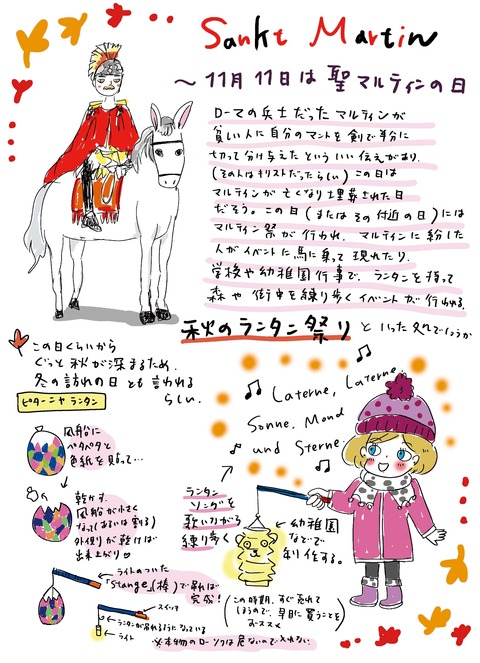 Sankt Martin
〜11月11日は聖マルティンの日
ローマの兵士だったマルティンが
貧しい人に自分のマントを剣で半分に
切って分け与えたといういい伝えがあり、
(その人はキリストだったらしい)この日は
マルティンが亡くなり埋葬された日
だそう。この日(またはその付近の日)には
マルティン祭が行われ、マルティンに紛した
人がイベントに馬に乗って現れたり、
学校や幼稚園行事で、ランタンを持って
森や街中を練り歩くイベントが行われる。
秋のランタン祭りといった処でしょうか
この日くらいから
ぐっと秋が深まるため、
冬の訪れの日とも言われる
らしい。
ピターニャランタン
風船に
ペタペタと
色紙を貼って…
乾かす。
風船が小さく
なって(あるいは割る)
外側が乾けば
出来上がり♡
ライトのついた
「Stange」(棒)で吊れば
完成!
スイッチ
ランタンが吊れるようになっている
ライト
※本物のローソクは危ないので入れない
♫ Laterne, Laterne,
Sonne, Mond
und Sterne
ランタン
ソングを
歌いながら
練り歩く
幼稚園
などで
制作する。
(この時期、すぐ売れて
しまうので、早目に買うことを
おススメ)